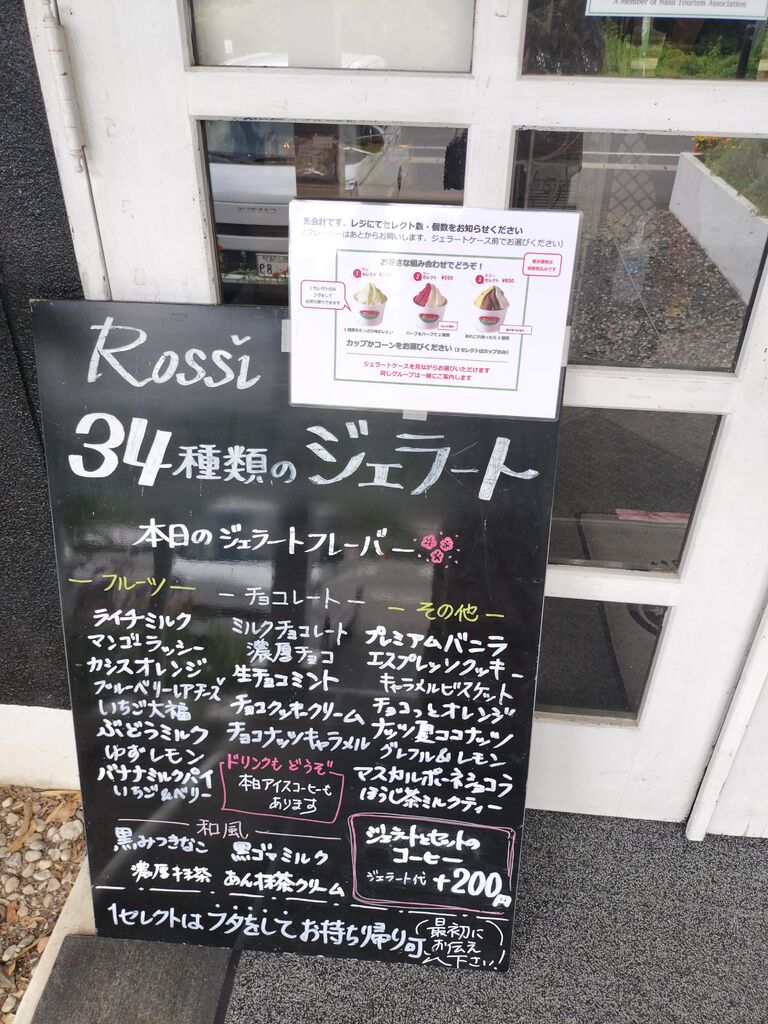 A Member of Nasu Tourism Association
先会計です。レジにてセレクト数・個数をお知らせください
(フレーバーはあとからお伺いします、ジェラートケース前でお選びください)
お好きな組み合わせでどうぞ！
1 セレクト
2 セレクト ¥550
3 セレクト ¥630
1セレクトのみ
フタをして
お持ち帰りできます
ハーフ&ハーフで2種類
カップかコーンをお選びください (3セレクトはカップのみ)
ジェラートケースを見ながらお選びいただけます
同じグループは一緒にご案内します
Rossi
34種類のジェラート
本日のジェラートフレーバー
ーフルーツー
ライチミルク
マンゴーラッシー
カシスオレンジ
ブルーベリーレアチーズ
いちご大福
ぶどうミルク
ゆずレモン
バナナミルクパイ
いちご&ベリー
ーチョコレートー
ミルクチョコレート
濃厚チョコ
生チョコミント
チョコクッキークリーム
チョコナッツキャラメル
ドリンクもどうぞ
本日アイスコーヒーも
あります
ーその他ー
プレミアムバニラ
エスプレッソクッキー
キャラメルビスケット
チョコっとオレンジ
ナッツ&ココナッツ
グレフル&レモン
マスカルポーネショコラ
ほうじ茶ミルクティー
ー和風ー
黒みつきなこ
黒ゴマミルク
濃厚抹茶
あん抹茶クリーム
ジェラートとセットの
コーヒー
ジェラート代 +200円
1セレクトはフタをしてお持ち帰り可
(最初に
お伝え
下さい!)